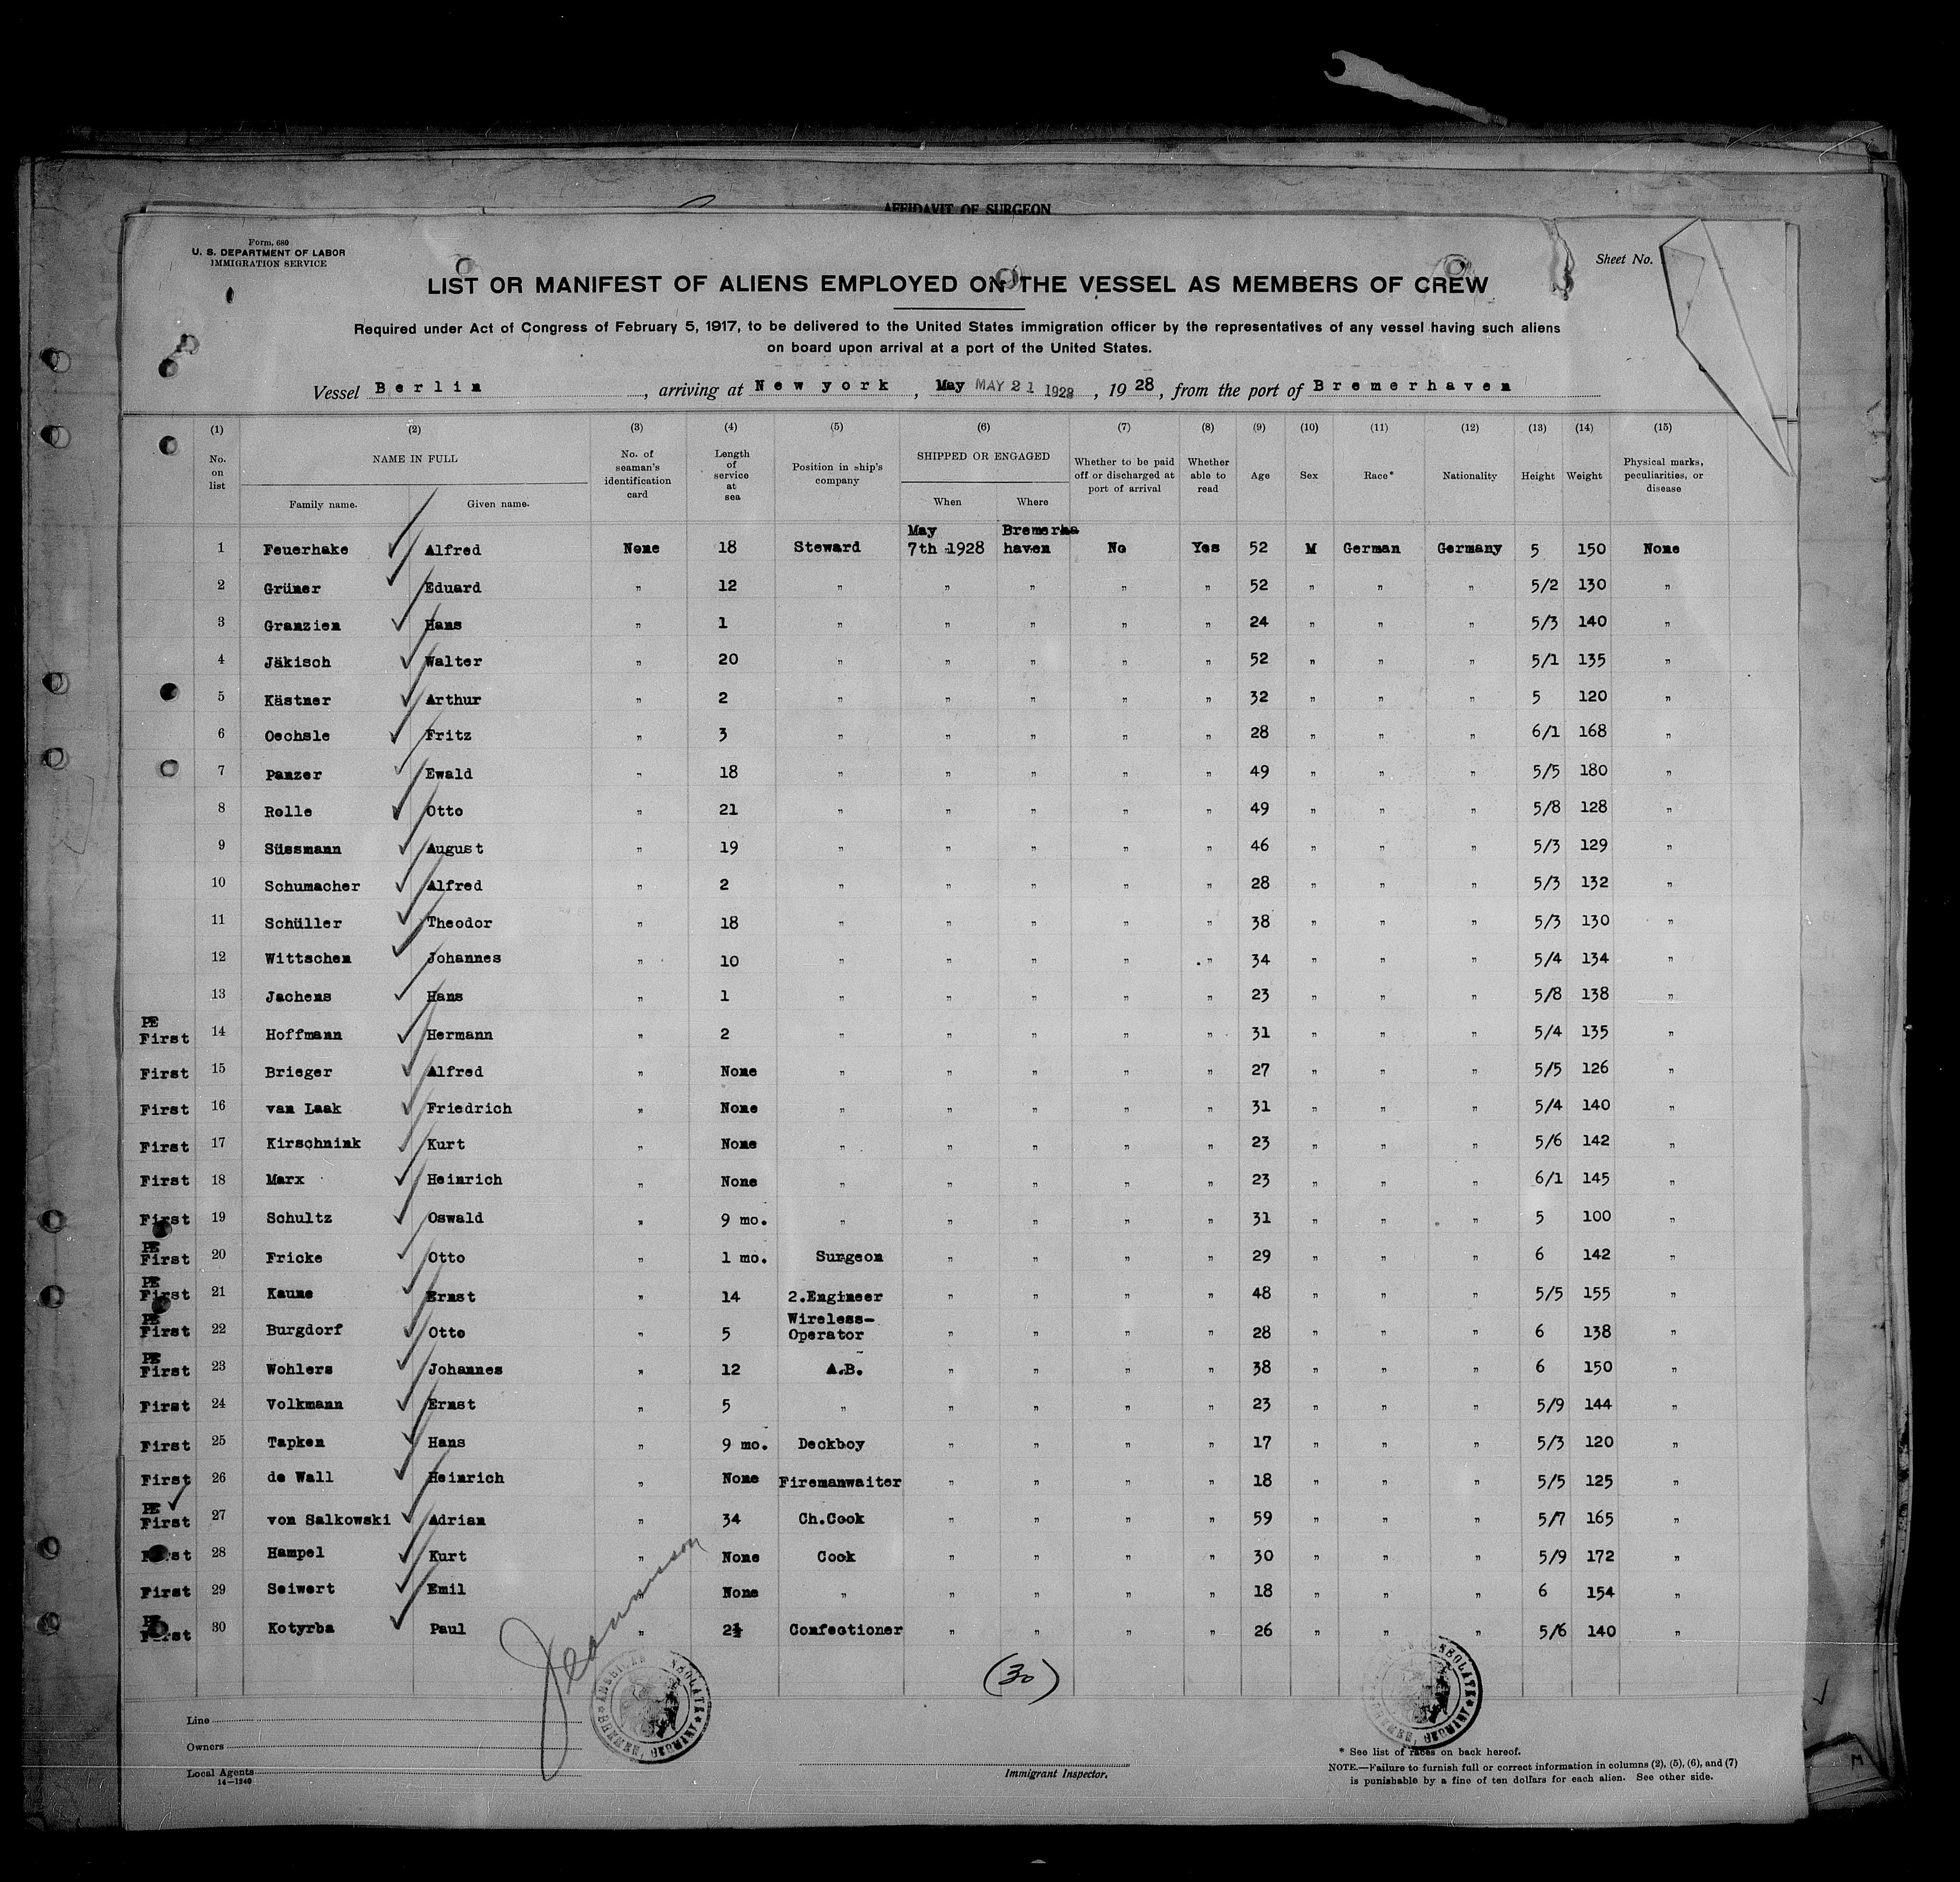 AFFIDAVIT OF SURGEON
Form. 680
U. S. DEPARTMENT OF LABOR
IMMIGRATION SERVICE
Sheet No.
LIST OR MANIFEST OF ALIENS EMPLOYED ON THE VESSEL AS MEMBERS OF CREW
Required under Act of Congress of February 5, 1917, to be delivered to the United States immigration officer by the representatives of any vessel having such aliens
on board upon arrival at a port of the United States.
Vessel Berlin, arriving at New york, May MAY 21 1928, 1928, from the port of Bremerhaven
(1) (2) (3) (4) (5) (6) (7) (8) (9) (10) (11) (12) (13) (14) (15)
No. on list NAME IN FULL Family name. Given name. No. of seaman's identification card Length of service at sea Position in ship's company SHIPPED OR ENGAGED When Where Whether to be paid off or discharged at port of arrival Whether able to read Age Sex Race* Nationality Height Weight Physical marks, peculiarities, or disease
1 Feuerhake Alfred None 18 Steward May 7th 1928 Bremerha haven No Yes 52 M German Germany 5 150 None
2 Grüner Eduard " 12 " " " " " 52 " " " 5/2 130 "
3 Granzien Hans " 1 " " " " " 24 " " " 5/3 140 "
4 Jäkisch Walter " 20 " " " " " 52 " " " 5/1 135 "
5 Kästner Arthur " 2 " " " " " 32 " " " 5 120 "
6 Oechsle Fritz " 3 " " " " " 28 " " " 6/1 168 "
7 Panzer Ewald " 18 " " " " " 49 " " " 5/5 180 "
8 Rolle Otto " 21 " " " " " 49 " " " 5/8 128 "
9 Süssmann August " 19 " " " " " 46 " " " 5/3 129 "
10 Schumacher Alfred " 2 " " " " " 28 " " " 5/3 132 "
11 Schüller Theodor " 18 " " " " " 38 " " " 5/3 130 "
12 Wittschen Johannes " 10 " " " " " 34 " " " 5/4 134 "
13 Jachens Hans " 1 " " " " " 23 " " " 5/8 138 "
PE First 14 Hoffmann Hermann " 2 " " " " " 31 " " " 5/4 135 "
First 15 Brieger Alfred " None " " " " " 27 " " " 5/5 126 "
First 16 van Laak Friedrich " None " " " " " 31 " " " 5/4 140 "
First 17 Kirschnink Kurt " None " " " " " 23 " " " 5/6 142 "
First 18 Marx Heinrich " None " " " " " 23 " " " 6/1 145 "
First 19 Schultz Oswald " 9 mo. " " " " " 31 " " " 5 100 "
PE First 20 Fricke Otto " 1 mo. Surgeon " " " " 29 " " " 6 142 "
PE First 21 Kaune Ernst " 14 2.Engineer " " " " 48 " " " 5/5 155 "
PE First 22 Burgdorf Otto " 5 Wireless-Operator " " " " 28 " " " 6 138 "
PE First 23 Wohlers Johannes " 12 A.B. " " " " 38 " " " 6 150 "
First 24 Volkmann Ernst " 5 " " " " " 23 " " " 5/9 144 "
First 25 Tapken Hans " 9 mo. Deckboy " " " " 17 " " " 5/3 120 "
First 26 de Wall Heinrich " None Firemanwaiter " " " " 18 " " " 5/5 125 "
PE First 27 von Salkowski Adrian " 34 Ch.Cook " " " " 59 " " " 5/7 165 "
First 28 Hampel Kurt " None Cook " " " " 30 " " " 5/9 172 "
First 29 Seiwert Emil " None " " " " " 18 " " " 6 154 "
PE First 30 Kotyrba Paul " 2½ Confectioner " " " " 26 " " " 5/6 140 "
(30)
Line
Owners
Local Agents
14—1240
Immigrant Inspector.
* See list of races on back hereof.
NOTE.—Failure to furnish full or correct information in columns (2), (5), (6), and (7)
is punishable by a fine of ten dollars for each alien. See other side.